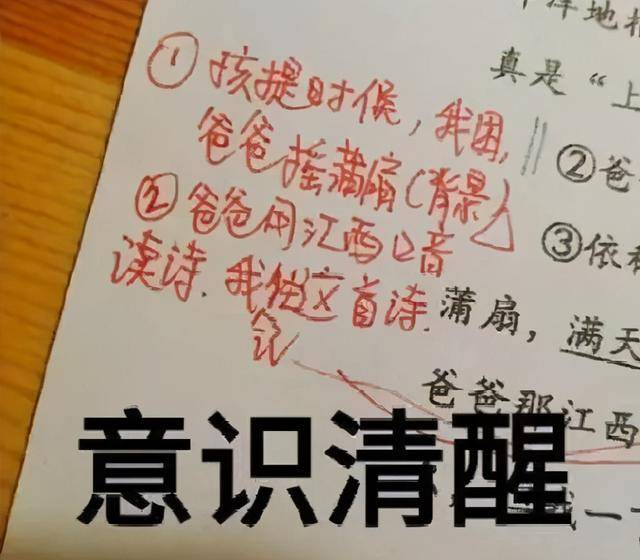 ①孩提时候，我困，
爸爸摇蒲扇(背景)
②爸爸用江西口音
读诗.我这首诗.
洋地
真是“上
②爸
③依
蒲扇，满天
爸爸那江西
一
意识清醒